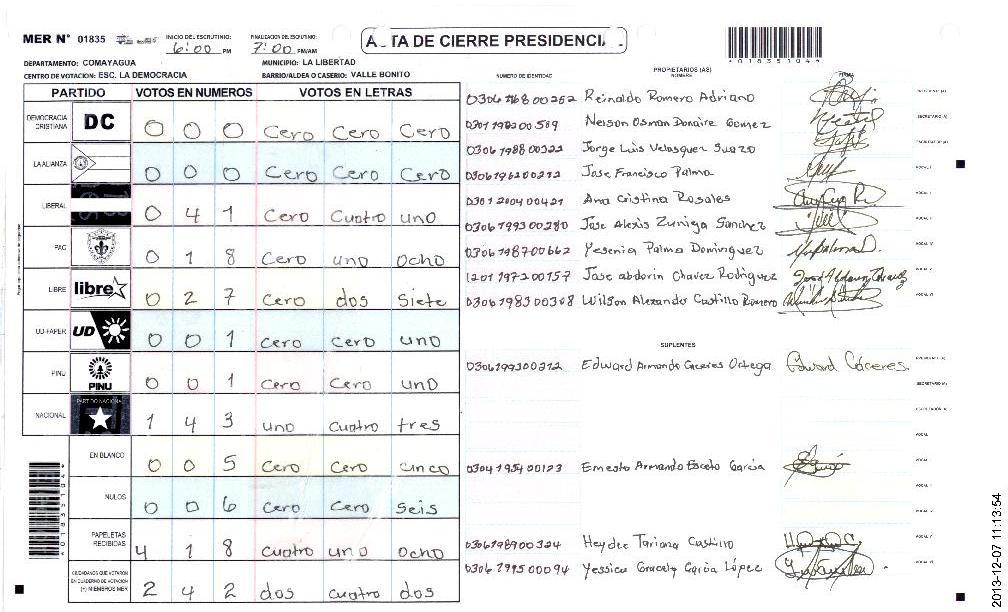 MER N° 01835
INICIO DEL ESCRUTINIO: 6:00 PM
FINALIZACION DEL ESCRUTINIO: 7:00 PM/AM
A TA DE CIERRE PRESIDENCI
*01835104*
DEPARTAMENTO: COMAYAGUA
MUNICIPIO: LA LIBERTAD
CENTRO DE VOTACION: ESC. LA DEMOCRACIA
BARRIO/ALDEA O CASERIO: VALLE BONITO
PARTIDO VOTOS EN NUMEROS VOTOS EN LETRAS
DEMOCRACIA CRISTIANA DC 0 0 0 Cero Cero Cero
LA ALIANZA 0 0 0 Cero Cero Cero
LIBERAL 0 4 1 Cero Cuatro uno
PAC 0 1 8 Cero uno ocho
LIBRE libre 0 2 7 Cero dos Siete
UD-FAPER UD 0 0 1 Cero Cero uno
PINU PINU 0 0 1 Cero Cero uno
NACIONAL PARTIDO NACIONAL 1 4 3 uno cuatro tres
EN BLANCO 0 0 5 Cero Cero cinco
NULOS 0 0 6 Cero Cero seis
PAPELETAS RECIBIDAS 4 1 8 cuatro uno ocho
CIUDADANOS QUE VOTARON EN CUADERNO DE VOTACION (+) MIEMBROS MER 2 4 2 dos cuatro dos
*01835104*
NUMERO DE IDENTIDAD
PROPIETARIOS (AS)
NOMBRE
FIRMA
Reinaldo Romero Adriano PRESIDENTE (A)
Nelson Osman Donaire Gomez SECRETARIO (A)
Jorge Luis Velasquez Suazo ESCRUTADOR (A)
Jose Francisco Palma VOCAL I
0301200400421 Ana Cristina Rosales
0306199300280 Jose Alexis Zuniga Sanchez
0306198700662 Yesenia Palma Dominguez
1201197200157 Jose abdorin Chavez Rodriguez
0306198300308 Wilson Alexando Castillo Romero
SUPLENTES
0306199300312 Edward Armando Caceres Ortega Edward Cáceres PRESIDENTE (A)
SECRETARIO (A)
ESCRUTADOR (A)
VOCAL
0304195400123 Ernesto Armando Escoto Garcia VOCAL
VOCAL
0306198900324 Heydee Tariana Castillo VOCAL
Yessica Gracely Garcia López VOCAL
2013-12-07 11:13:54